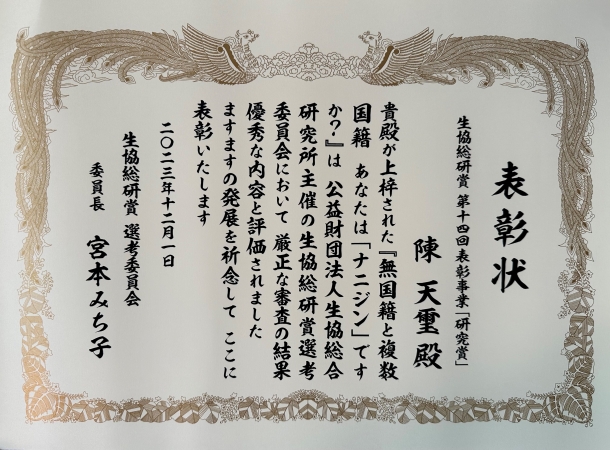 表彰状
生協総研賞 第十四回表彰事業「研究賞」
陳 天璽 殿
貴殿が上梓された『無国籍と複数
国籍 あなたは「ナニジン」です
か?』は 公益財団法人生協総合
研究所主催の生協総研賞選考
委員会において 厳正な審査の結果
優秀な内容と評価されました
ますますの発展を祈念して ここに
表彰いたします
二〇二三年十二月一日
生協総研賞 選考委員会
委員長 宮本みち子